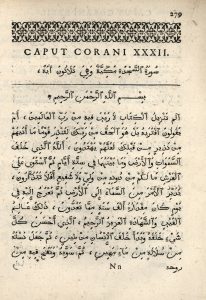 279
CAPUT CORANI XXXII.
سورة السجدة مكية وفي ثلاثون آية
بسم الله الرحمن الرحيم
الم تنزيل الكتاب لا ريب فيه من رب العالمين، أم
يقولون افتريه بل هو الحق من ربك لتنذر قوما ما أتيهم
من نذير من قبلك لعلهم يهتدون، الله الذي خلق
السموات والأرض وما بينهما في ستة أيام ثم استوى على
العرش ما لكم من دونه من ولي ولا شفيع أفلا تتذكرون،
يدبر الأمر من السماء إلى الأرض ثم يعرج إليه في
يوم كان مقداره ألف سنة مما تعدون، ذلك عالم
الغيب والشهادة العزيز الرحيم، الذي أحسن كل
شيء خلقه وبدأ خلق الانسان من طين، ثم جعل نسله
من سلالة من ماء مهين، ثم سويه ونفخ فيه من
Nn روحه